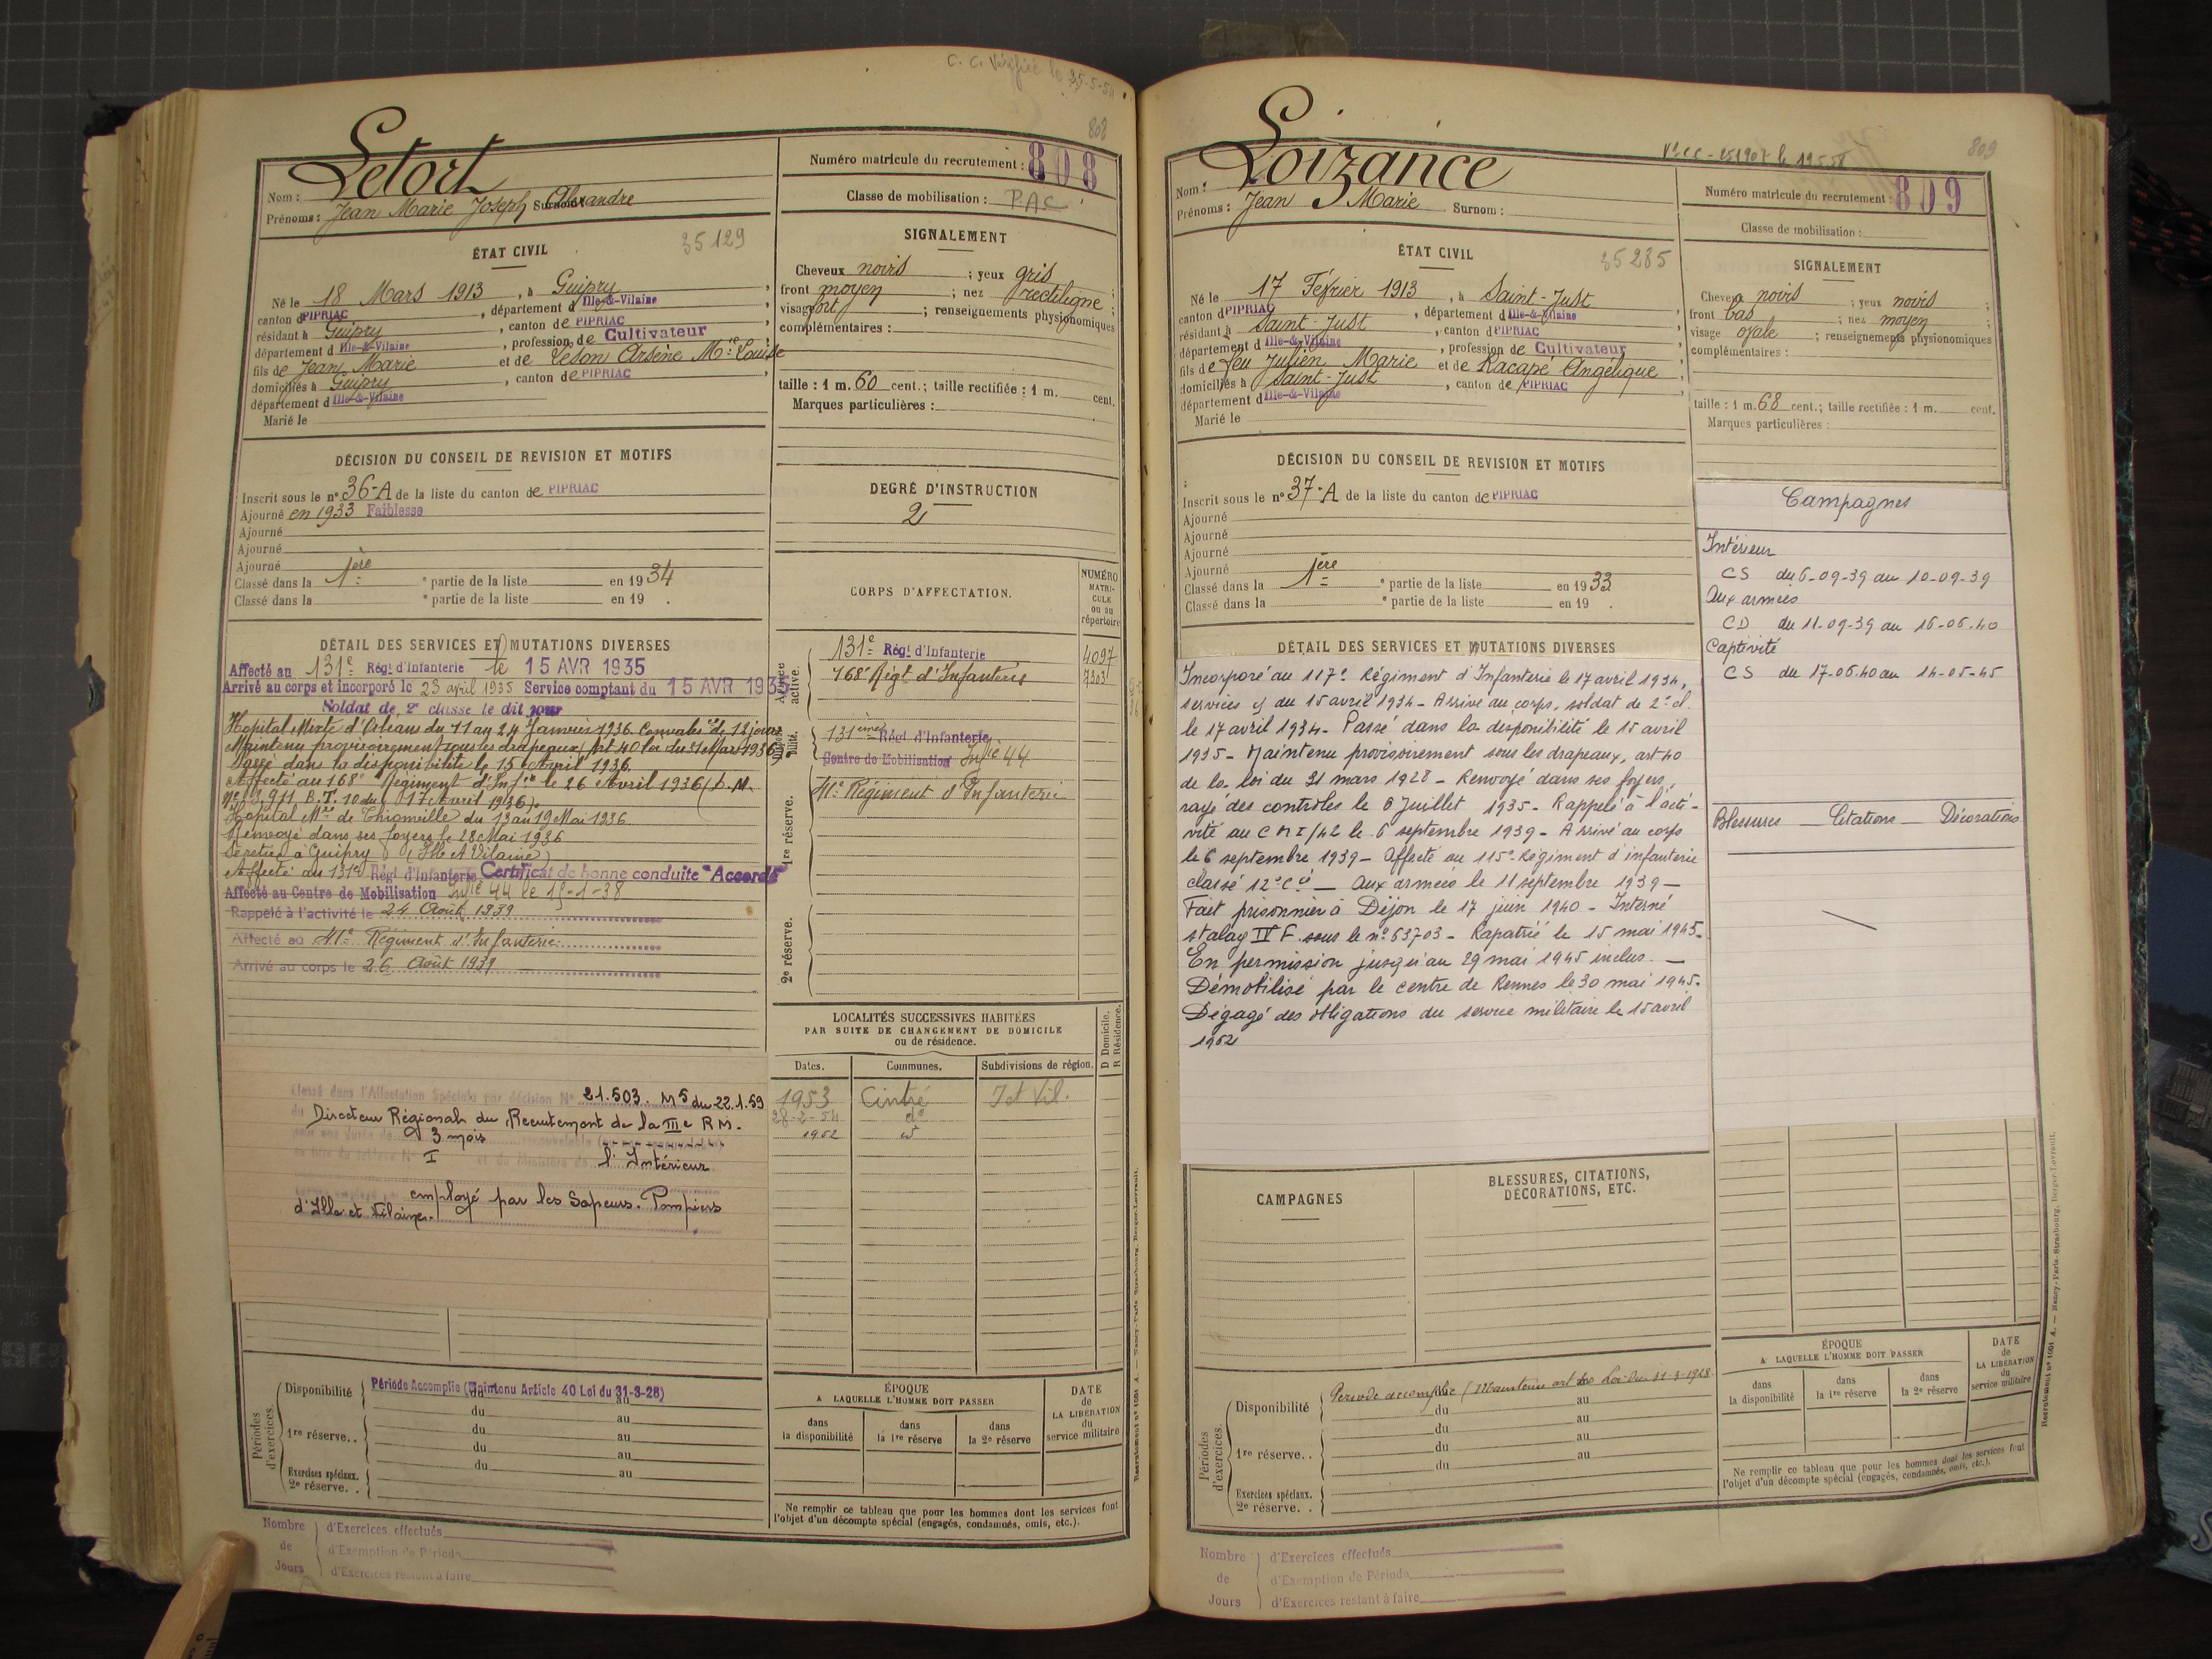 C. C. Vérifié le 25-5-54
808
Letort
Nom :
Prénoms : Jean Marie Joseph Alexandre Surnom :
Numéro matricule du recrutement : 808
Classe de mobilisation : PAC
ÉTAT CIVIL
35129
Né le 18 Mars 1913, à Guipry,
canton de PIPRIAC, département d'Ille-&-Vilaine,
résidant à Guipry, canton de PIPRIAC,
département d'Ille-&-Vilaine, profession de Cultivateur
fils de Jean Marie et de Leson Arsène Mie Louise
domiciliés à Guipry, canton de PIPRIAC,
département d'Ille-&-Vilaine
Marié le
SIGNALEMENT
Cheveux noirs ; yeux gris ;
front moyen ; nez rectiligne ;
visage fort ; renseignements physionomiques
complémentaires :
taille : 1 m. 60 cent.; taille rectifiée : 1 m. cent.
Marques particulières :
DÉCISION DU CONSEIL DE REVISION ET MOTIFS
Inscrit sous le n° 36-A de la liste du canton de PIPRIAC
Ajourné en 1933 Faiblesse
Ajourné
Ajourné
Ajourné
Classé dans la 1ère e partie de la liste en 1934
Classé dans la e partie de la liste en 19 .
DEGRÉ D'INSTRUCTION
2
CORPS D'AFFECTATION.
NUMÉRO MATRI-CULE ou au répertoire
Armée active.
131e Régt d'Infanterie 4097
168e Régt d'Infanterie 7303
Disponibilité.
131ème Régt d'Infanterie
Centre de Mobilisation Infie 44
1re réserve.
41e Régiment d'Infanterie
2e réserve.
DÉTAIL DES SERVICES ET MUTATIONS DIVERSES
Affecté au 131e Régt d'Infanterie le 15 AVR 1935
Arrivé au corps et incorporé le 23 avril 1935 Service comptant du 15 AVR 1935
Soldat de 2e classe le dit jour
Hôpital Mixte d'Orléans du 11 au 24 Janvier 1936. Convales ce de 12 jours
Maintenu provisoirement sous les drapeaux (Art 40 loi du 31 Mars 1936
Passé dans la disponibilité le 15 Avril 1936.
Affecté au 168e Régiment d'Infie le 26 Avril 1936 (D.M.
No 3.911 B.T. 10 du 17 Avril 1936).
Hôpital Mre de Thionville du 13 au 19 Mai 1936.
Renvoyé dans ses foyers le 28 Mai 1936
Se retire à Guipry (Ille et Vilaine)
Affecté au 131e Régt d'Infanterie Certificat de bonne conduite "Accordé"
Affecté au Centre de Mobilisation Infie 44 le 15-1-38
Rappelé à l'activité le 24 Août 1939
Affecté au 41e Régiment d'Infanterie
Arrivé au corps le 26 Août 1939
Classé dans l'Affectation Spéciale par décision N° 21.503. M5 du 22.1.59
du Directeur Régional du Recrutement de la IIIe RM.
3 mois
I l'Intérieur
employé par les Sapeurs-Pompiers
d'Ille et Vilaine.
LOCALITÉS SUCCESSIVES HABITÉES
PAR SUITE DE CHANGEMENT DE DOMICILE
ou de résidence.
Dates. Communes. Subdivisions de région. D Domicile. R Résidence.
1953 Cintré I et Vil.
28-2-54 do
1952
Périodes d'exercices.
Disponibilité Période Accomplie (Maintenu Article 40 Loi du 31-3-28)
du au
1re réserve. . du au
du au
du au
Exercices spéciaux.
2e réserve. .
ÉPOQUE
A LAQUELLE L'HOMME DOIT PASSER
dans la disponibilité
dans la 1re réserve
dans la 2e réserve
DATE de LA LIBÉRATION du service militaire
Ne remplir ce tableau que pour les hommes dont les services font
l'objet d'un décompte spécial (engagés, condamnés, omis, etc.).
Nombre de Jours
d'Exercices effectués
d'Exemption de Période
d'Exercices restant à faire
Recrutement n° 1051 A. — Nancy-Paris-Strasbourg, Berger-Levrault.
809
Loizance
Nom :
Prénoms : Jean Marie Surnom :
Numéro matricule du recrutement : 809
Classe de mobilisation :
ÉTAT CIVIL
35285
Né le 17 Février 1913, à Saint-Just
canton de PIPRIAC, département d'Ille-&-Vilaine
résidant à Saint-Just, canton de PIPRIAC
département d'Ille-&-Vilaine, profession de Cultivateur
fils de feu Julien Marie et de Racapé Angélique
domiciliés à Saint-Just, canton de PIPRIAC
département d'Ille-&-Vilaine
Marié le
SIGNALEMENT
Cheveux noirs ; yeux noirs ;
front bas ; nez moyen ;
visage ovale ; renseignements physionomiques
complémentaires :
taille : 1 m. 68 cent.; taille rectifiée : 1 m. cent.
Marques particulières :
DÉCISION DU CONSEIL DE REVISION ET MOTIFS
Inscrit sous le n° 37-A de la liste du canton de PIPRIAC
Ajourné
Ajourné
Ajourné
Ajourné
Classé dans la 1ère e partie de la liste en 1933
Classé dans la e partie de la liste en 19 .
Campagnes
Intérieur
CS du 6-09-39 au 10-09-39
Aux armées
CD du 11-09-39 au 16-06-40
Captivité
CS du 17-06.40 au 14-05-45
Blessures — Citations — Décorations
DÉTAIL DES SERVICES ET MUTATIONS DIVERSES
Incorporé au 117e Régiment d'Infanterie le 17 avril 1934,
services c/ du 15 avril 1934 - Arrivé au corps, soldat de 2e cl.
le 17 avril 1934 - Passé dans la disponibilité le 15 avril
1935 - Maintenu provisoirement sous les drapeaux, art 40
de la loi du 31 mars 1928 - Renvoyé dans ses foyers,
rayé des contrôles le 6 Juillet 1935 - Rappelé à l'acti-
vité au C M I/42 le 6 septembre 1939 - Arrivé au corps
le 6 septembre 1939 - Affecté au 115e Régiment d'infanterie
classé 12e Cie — Aux armées le 11 septembre 1939 —
Fait prisonnier à Dijon le 17 juin 1940 - Interné
stalag IV F. sous le n° 63703 - Rapatrié le 15 mai 1945 -
En permission jusqu'au 29 mai 1945 inclus. —
Démobilisé par le centre de Rennes le 30 mai 1945.
Dégagé des obligations du service militaire le 15 avril
1962
CAMPAGNES
BLESSURES, CITATIONS,
DÉCORATIONS, ETC.
Périodes d'exercices.
Disponibilité Période accomplie (Maintenu art 40 Loi du 31-3-1928.
du au
1re réserve. . du au
du au
du au
Exercices spéciaux.
2e réserve. .
ÉPOQUE
A LAQUELLE L'HOMME DOIT PASSER
dans la disponibilité
dans la 1re réserve
dans la 2e réserve
DATE de LA LIBÉRATION du service militaire
Ne remplir ce tableau que pour les hommes dont les services font
l'objet d'un décompte spécial (engagés, condamnés, omis, etc.).
Nombre de Jours
d'Exercices effectués
d'Exemption de Période
d'Exercices restant à faire
Recrutement n° 1051 A. — Nancy-Paris-Strasbourg, Berger-Levrault.